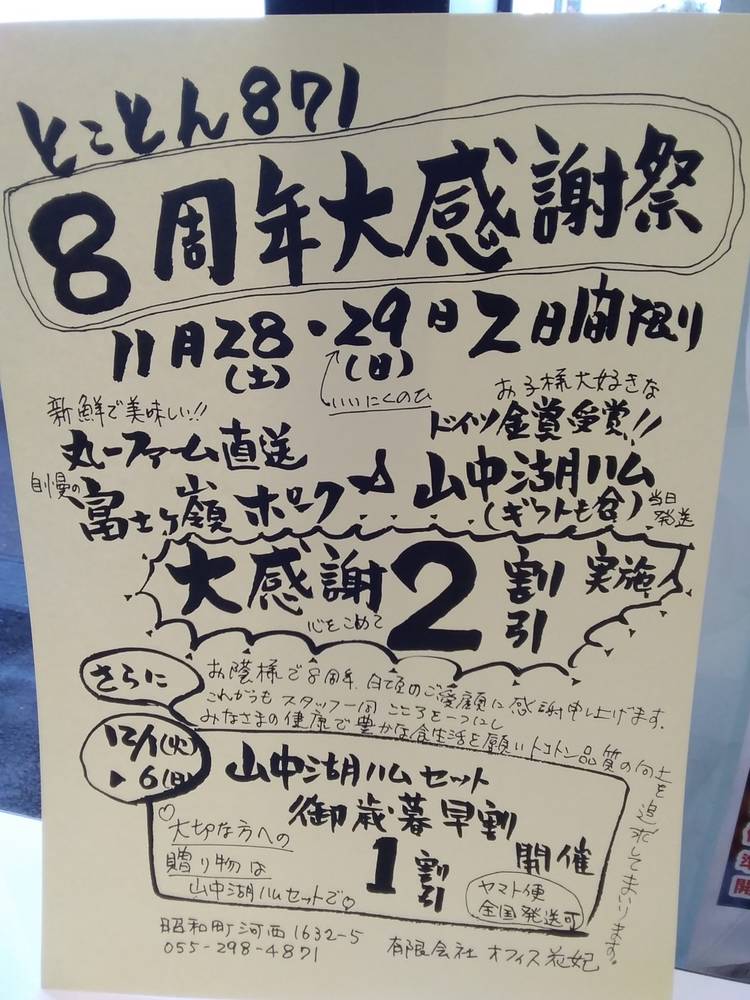 とことん871
8周年大感謝祭
11月28・29日2日間限り
(土) (日)
いいにくのひ
新鮮で美味しい!!
丸一ファーム直送
自慢の富士ヶ嶺ポーク
お子様大好きな
ドイツ金賞受賞!!
山中湖ハム
(ギフトも含) 当日発送
大感謝2割引実施
心をこめて
さらに
お蔭様で8周年、日頃のご愛顧に感謝申し上げます。
これからもスタッフ一同こころを一つにし
みなさまの健康で豊かな食生活を願いトコトン品質の向上を追求してまいります。
12/1(火)
6(日)
山中湖ハムセット
御歳暮早割
1割引
開催
大切な方への
贈り物は
山中湖ハムセットで♡
ヤマト便
全国発送可
昭和町河西1632-5
055-298-4871
有限会社オフィス花妃